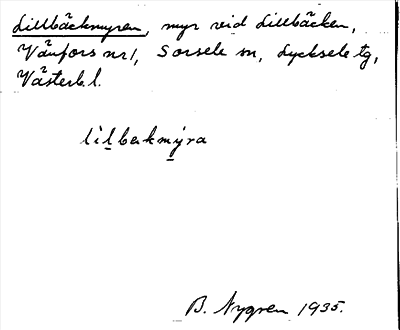 Lillbäckmyren, myr vid Lillbäcken,
Vänfors nr 1, Sorsele sn, Lycksele tg,
Västerb. l.
lìlbɛkmýra
B. Nygren 1935.